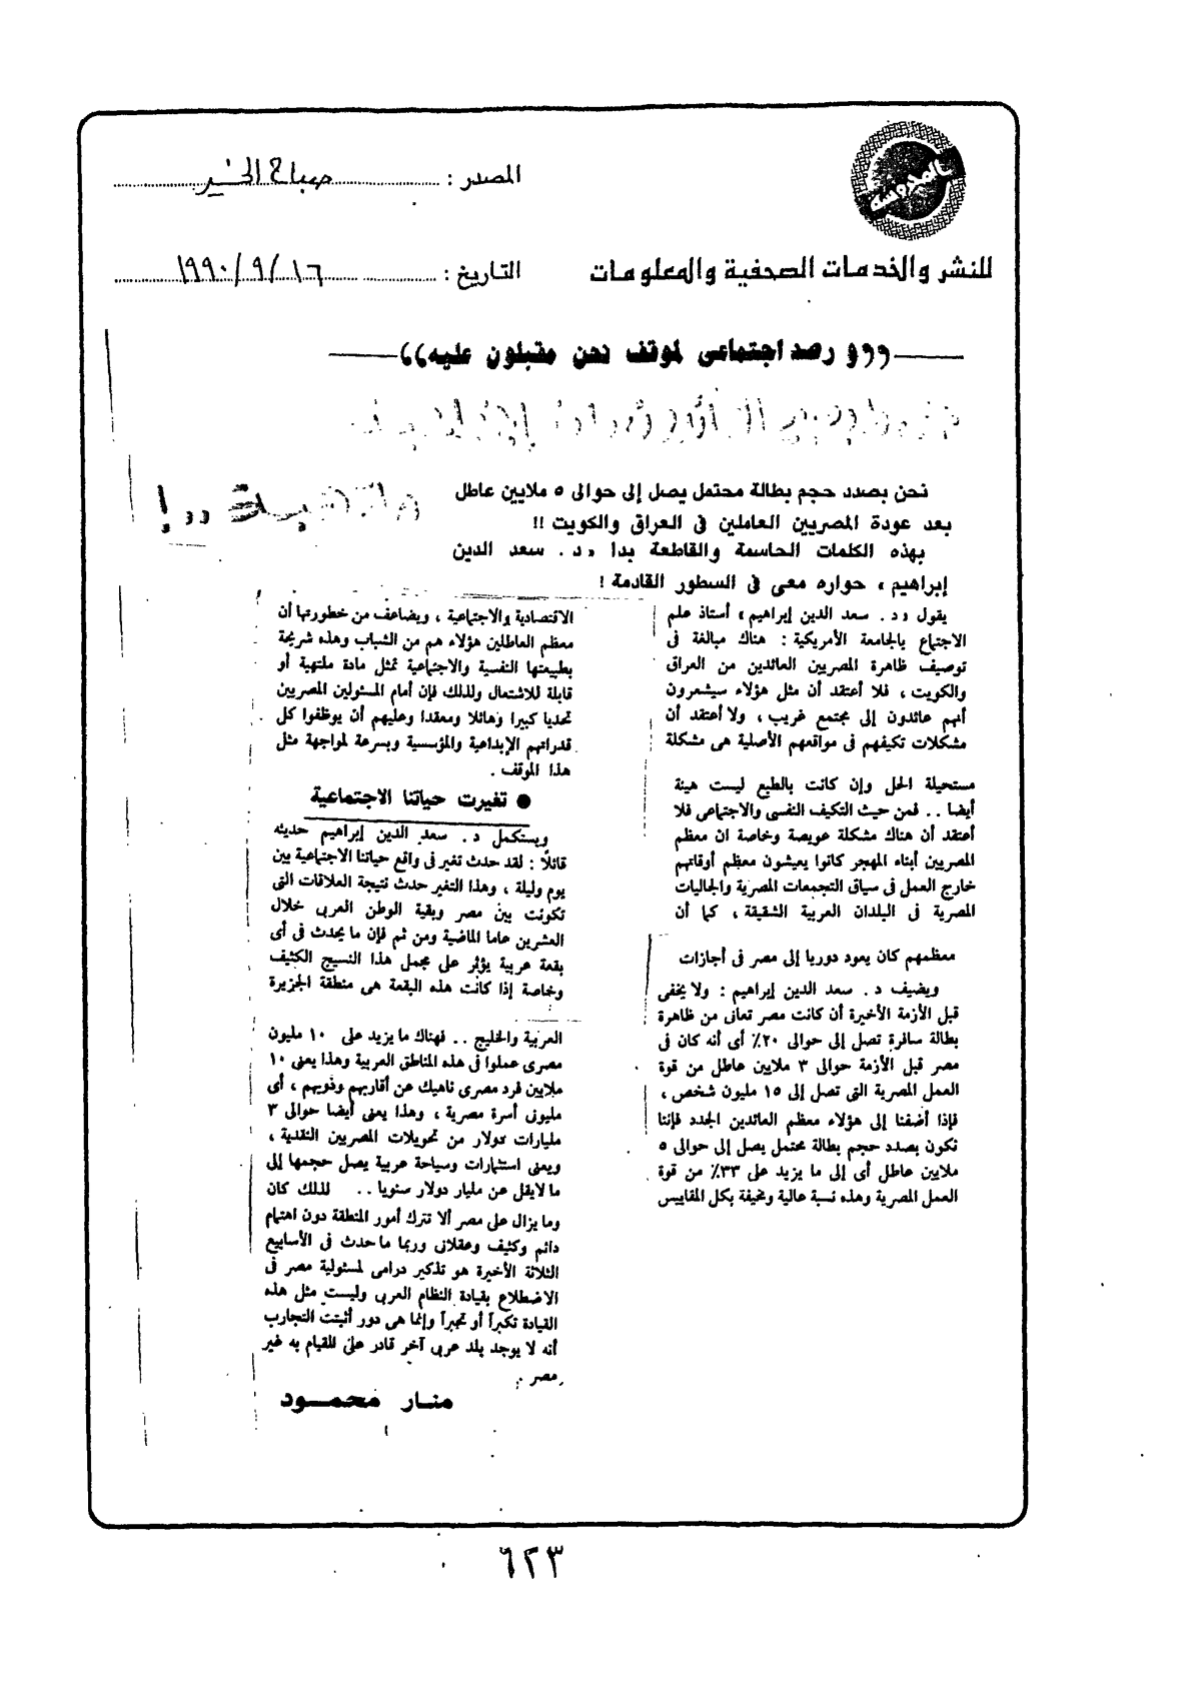 المصدر : صباح الخير
للنشر والخدمات الصحفية والمعلومات
التاريخ : ١٦ / ٩ / ١٩٩٠
و رصد اجتماعى لموقف نحن مقبلون عليه
نحن بصدد حجم بطالة محتمل يصل إلى حوالى ٥ ملايين عاطل
بعد عودة المصريين العاملين فى العراق والكويت !!
بهذه الكلمات الحاسمة والقاطعة بدا «د. سعد الدين
إبراهيم ، حواره معى فى السطور القادمة !
يقول «د. سعد الدين إبراهيم» أستاذ علم
الاجتماع بالجامعة الأمريكية : هناك مبالغة فى
توصيف ظاهرة المصريين العائدين من العراق
والكويت ، فلا أعتقد أن مثل هؤلاء سيشعرون
أنهم عائدون إلى مجتمع غريب ، ولا أعتقد أن
مشكلات تكيفهم فى مواقعهم الأصلية هى مشكلة
مستحيلة الحل وإن كانت بالطبع ليست هينة
أيضا .. فمن حيث التكيف النفسى والاجتماعى فلا
أعتقد أن هناك مشكلة عويصة وخاصة ان معظم
المصريين أبناء المهجر كانوا يعيشون معظم أوقاتهم
خارج العمل فى سياق التجمعات المصرية والجاليات
المصرية فى البلدان العربية الشقيقة ، كما أن
معظمهم كان يعود دوريا إلى مصر فى أجازات
ويضيف د. سعد الدين إبراهيم : ولا يخفى
قبل الأزمة الأخيرة أن كانت مصر تعانى من ظاهرة
بطالة سافرة تصل إلى حوالى ٢٠٪ أى أنه كان فى
مصر قبل الأزمة حوالى ٣ ملايين عاطل من قوة
العمل المصرية التى تصل إلى ١٥ مليون شخص ،
فإذا أضفنا إلى هؤلاء معظم العائدين الجدد فإننا
نكون بصدد حجم بطالة محتمل يصل إلى حوالى ٥
ملايين عاطل أى إلى ما يزيد على ٣٣٪ من قوة
العمل المصرية وهذه نسبة عالية ومخيفة بكل المقاييس
الاقتصادية والاجتماعية ، ويضاعف من خطورتها أن
معظم العاطلين هؤلاء هم من الشباب وهذه شريحة
بطبيعتها النفسية والاجتماعية تمثل مادة ملتهبة أو
قابلة للاشتعال ولذلك فإن أمام المسئولين المصريين
تحديا كبيرا وهائلا ومعقدا وعليهم أن يوظفوا كل
قدراتهم الإبداعية والمؤسسية وبسرعة لمواجهة مثل
هذا الموقف .
● تغيرت حياتنا الاجتماعية
ويستكمل د. سعد الدين إبراهيم حديثه
قائلاً : لقد حدث تغير فى واقع حياتنا الاجتماعية بين
يوم وليلة ، وهذا التغير حدث نتيجة العلاقات التى
تكونت بين مصر وبقية الوطن العربى خلال
العشرين عاما الماضية ومن ثم فإن ما يحدث فى أى
بقعة عربية يؤثر على مجمل هذا النسيج الكثيف
وخاصة إذا كانت هذه البقعة هى منطقة الجزيرة
العربية والخليج .. فهناك ما يزيد على ١٠ مليون
مصرى عملوا فى هذه المناطق العربية وهذا يعنى ١٠
ملايين فرد مصرى ناهيك عن أقاربهم وذويهم ، أى
مليونى أسرة مصرية ، وهذا يعنى أيضا حوالى ٣
مليارات دولار من تحويلات المصريين النقدية ،
ويعنى استثمارات وسياحة عربية يصل حجمها إلى
ما لايقل عن مليار دولار سنويا .. لذلك كان
وما يزال على مصر ألا تترك أمور المنطقة دون اهتمام
دائم وكثيف وعقلانى وربما ما حدث فى الأسابيع
الثلاثة الأخيرة هو تذكير درامى لمسئولية مصر فى
الاضطلاع بقيادة النظام العربى وليست مثل هذه
القيادة تكبراً أو تجبراً وإنما هى دور أثبتت التجارب
أنه لا يوجد بلد عربى آخر قادر على للقيام به غير
مصر .
منار محمود
٦٢٣